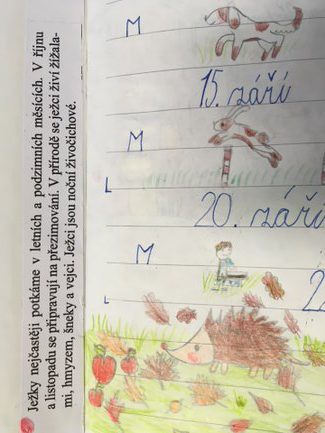 Ježky nejčastěji potkáme v letních a podzimních měsících. V říjnu
a listopadu se připravují na přezimování. V přírodě se ježci živí žížala-
mi, hmyzem, šneky a vejci. Ježci jsou noční živočichové.
M
15. září
M
20. září
M
2